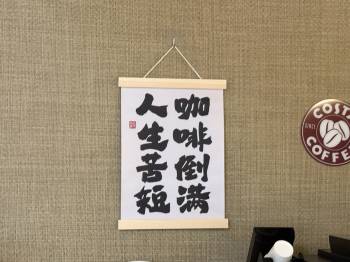 咖啡倒满
人生苦短
COSTA
COFFEE